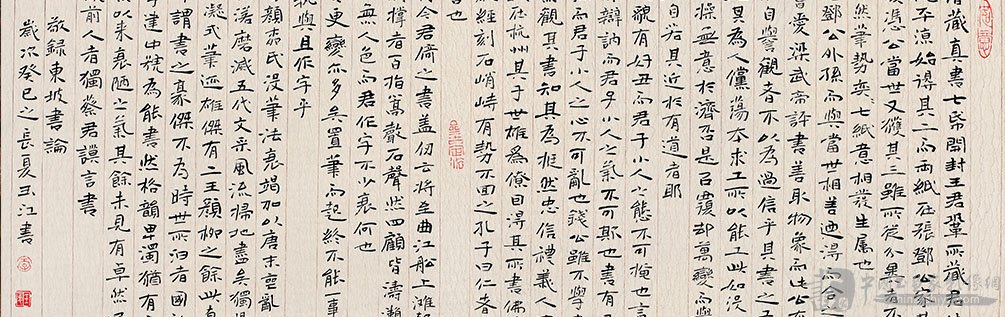 藏真書七帋開封王君鞏所藏君
平涼始得其二而兩紙在張鄧公家
馮公當世又獲其三雖所從分異者
然筆勢奕七紙意相發生屬也
鄧公外孫而與當世相善迺得
嘗愛梁武帝評書善取物象而此公
自譽觀者不以為過信乎其書之工
其為人儻蕩本求工所以能工此如沒
操無意於濟否是以覆却萬變而
自若其近於有道者耶
貌有好丑而君子小人之態不可掩也言
辯訥而君子小人之氣不可欺也書有
而君子小人之心不可亂也錢公雖不學
觀其書知其為挺然忠信禮義人
在杭州其子世雄為僚因得其所書佛
經刻石峭峙有勢不回之孔子曰仁者
也
令君倚之書蓋仞云將至曲江船上灘
撐者百指篙聲石聲然四顧皆濤瀨
無人色而君作字不少衰何也
更變亦多矣置筆而起終不能一事
孰與且作字乎
顏氏沒筆法衰竭加以唐末喪亂
落磨滅五代文采風流掃地盡矣獨
凝式筆迹雄傑有二王顏柳之餘此真
謂書之豪傑不為時世所汩者國
建中號為能書然格韻卑濁猶有
以來衰陋之氣其餘未見有卓然
前人者獨蔡君謨言書
敬錄東坡書論
歲次癸巳之長夏玉江書